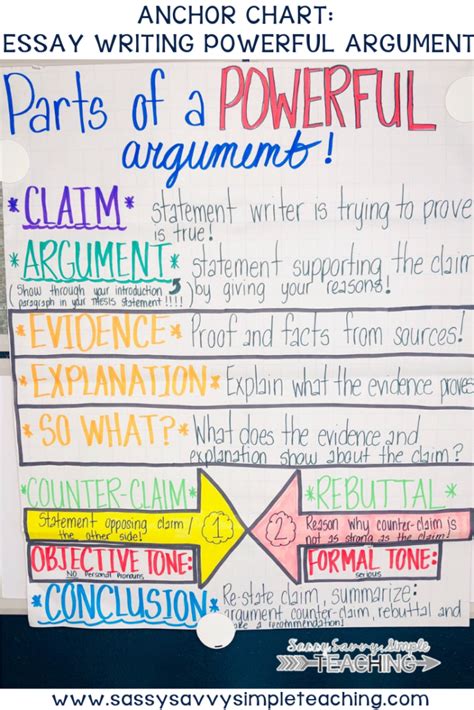 ANCHOR CHART:
ESSAY WRITING POWERFUL ARGUMENT
Parts of a POWERFUL
argument!
*CLAIM* Statement writer is trying to prove
is true!
*ARGUMENT* statement supporting the claim
(Show through your introduction
paragraph in your THESIS STATEMENT!!!!) by giving your reasons!
*EVIDENCE* Proof and facts from sources!
*EXPLANATION* Explain what the evidence proves
*SO WHAT?* What does the evidence and
explanation show about the claim?
*COUNTER-CLAIM *REBUTTAL*
Statement opposing claim/
the other side! 1 2 Reason why counter-claim is
not as strong as the claim!
OBJECTIVE TONE: FORMAL TONE:
NO Personal Pronouns serious
*CONCLUSION* Re-state claim, summarize:
argument counter-claim, rebuttal and
make a recommendation!
Sassy, Savvy, Simple
TEACHING
www.sassysavvysimpleteaching.com